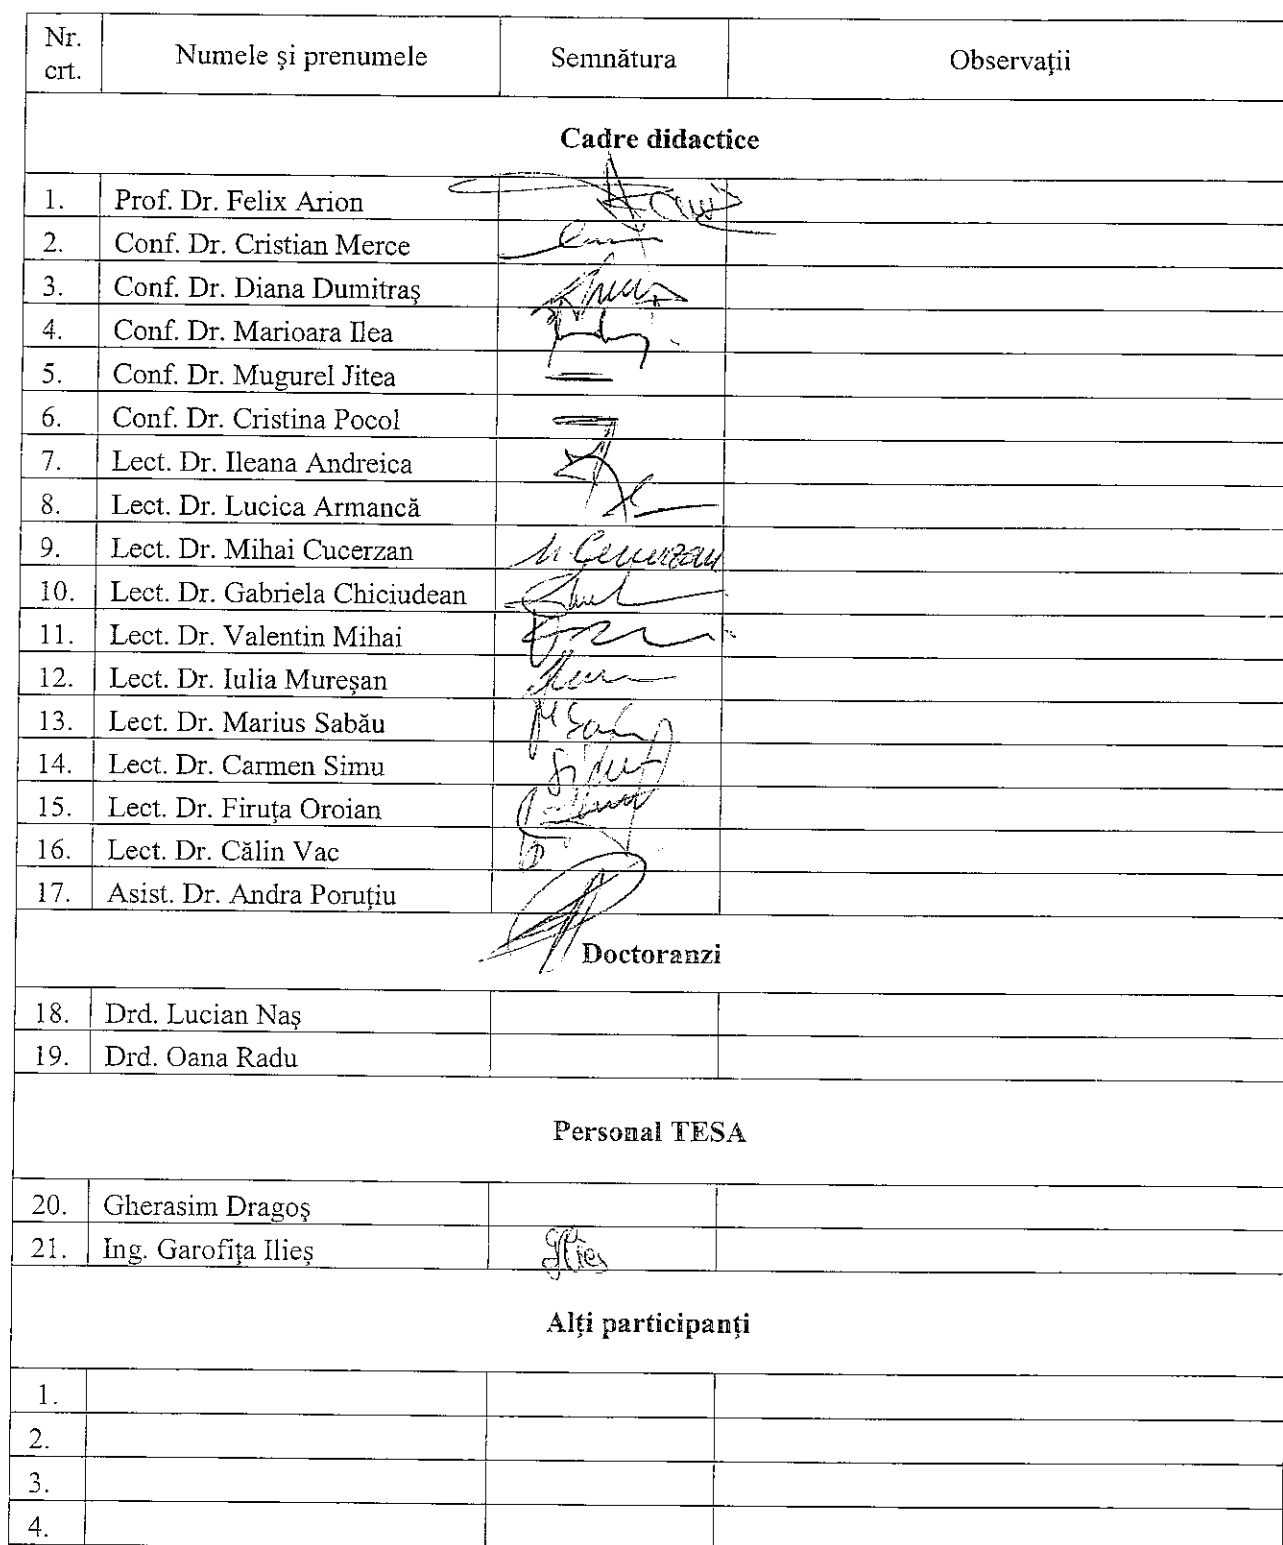 Nr. crt. Numele şi prenumele Semnătura Observaţii
Cadre didactice
1. Prof. Dr. Felix Arion
2. Conf. Dr. Cristian Merce
3. Conf. Dr. Diana Dumitraş
4. Conf. Dr. Marioara Ilea
5. Conf. Dr. Mugurel Jitea
6. Conf. Dr. Cristina Pocol
7. Lect. Dr. Ileana Andreica
8. Lect. Dr. Lucica Armancă
9. Lect. Dr. Mihai Cucerzan M Cucerzan
10. Lect. Dr. Gabriela Chiciudean
11. Lect. Dr. Valentin Mihai
12. Lect. Dr. Iulia Mureşan
13. Lect. Dr. Marius Sabău
14. Lect. Dr. Carmen Simu
15. Lect. Dr. Firuţa Oroian
16. Lect. Dr. Călin Vac
17. Asist. Dr. Andra Poruţiu
Doctoranzi
18. Drd. Lucian Naş
19. Drd. Oana Radu
Personal TESA
20. Gherasim Dragoş
21. Ing. Garofiţa Ilieş
Alţi participanţi
1.
2.
3.
4.